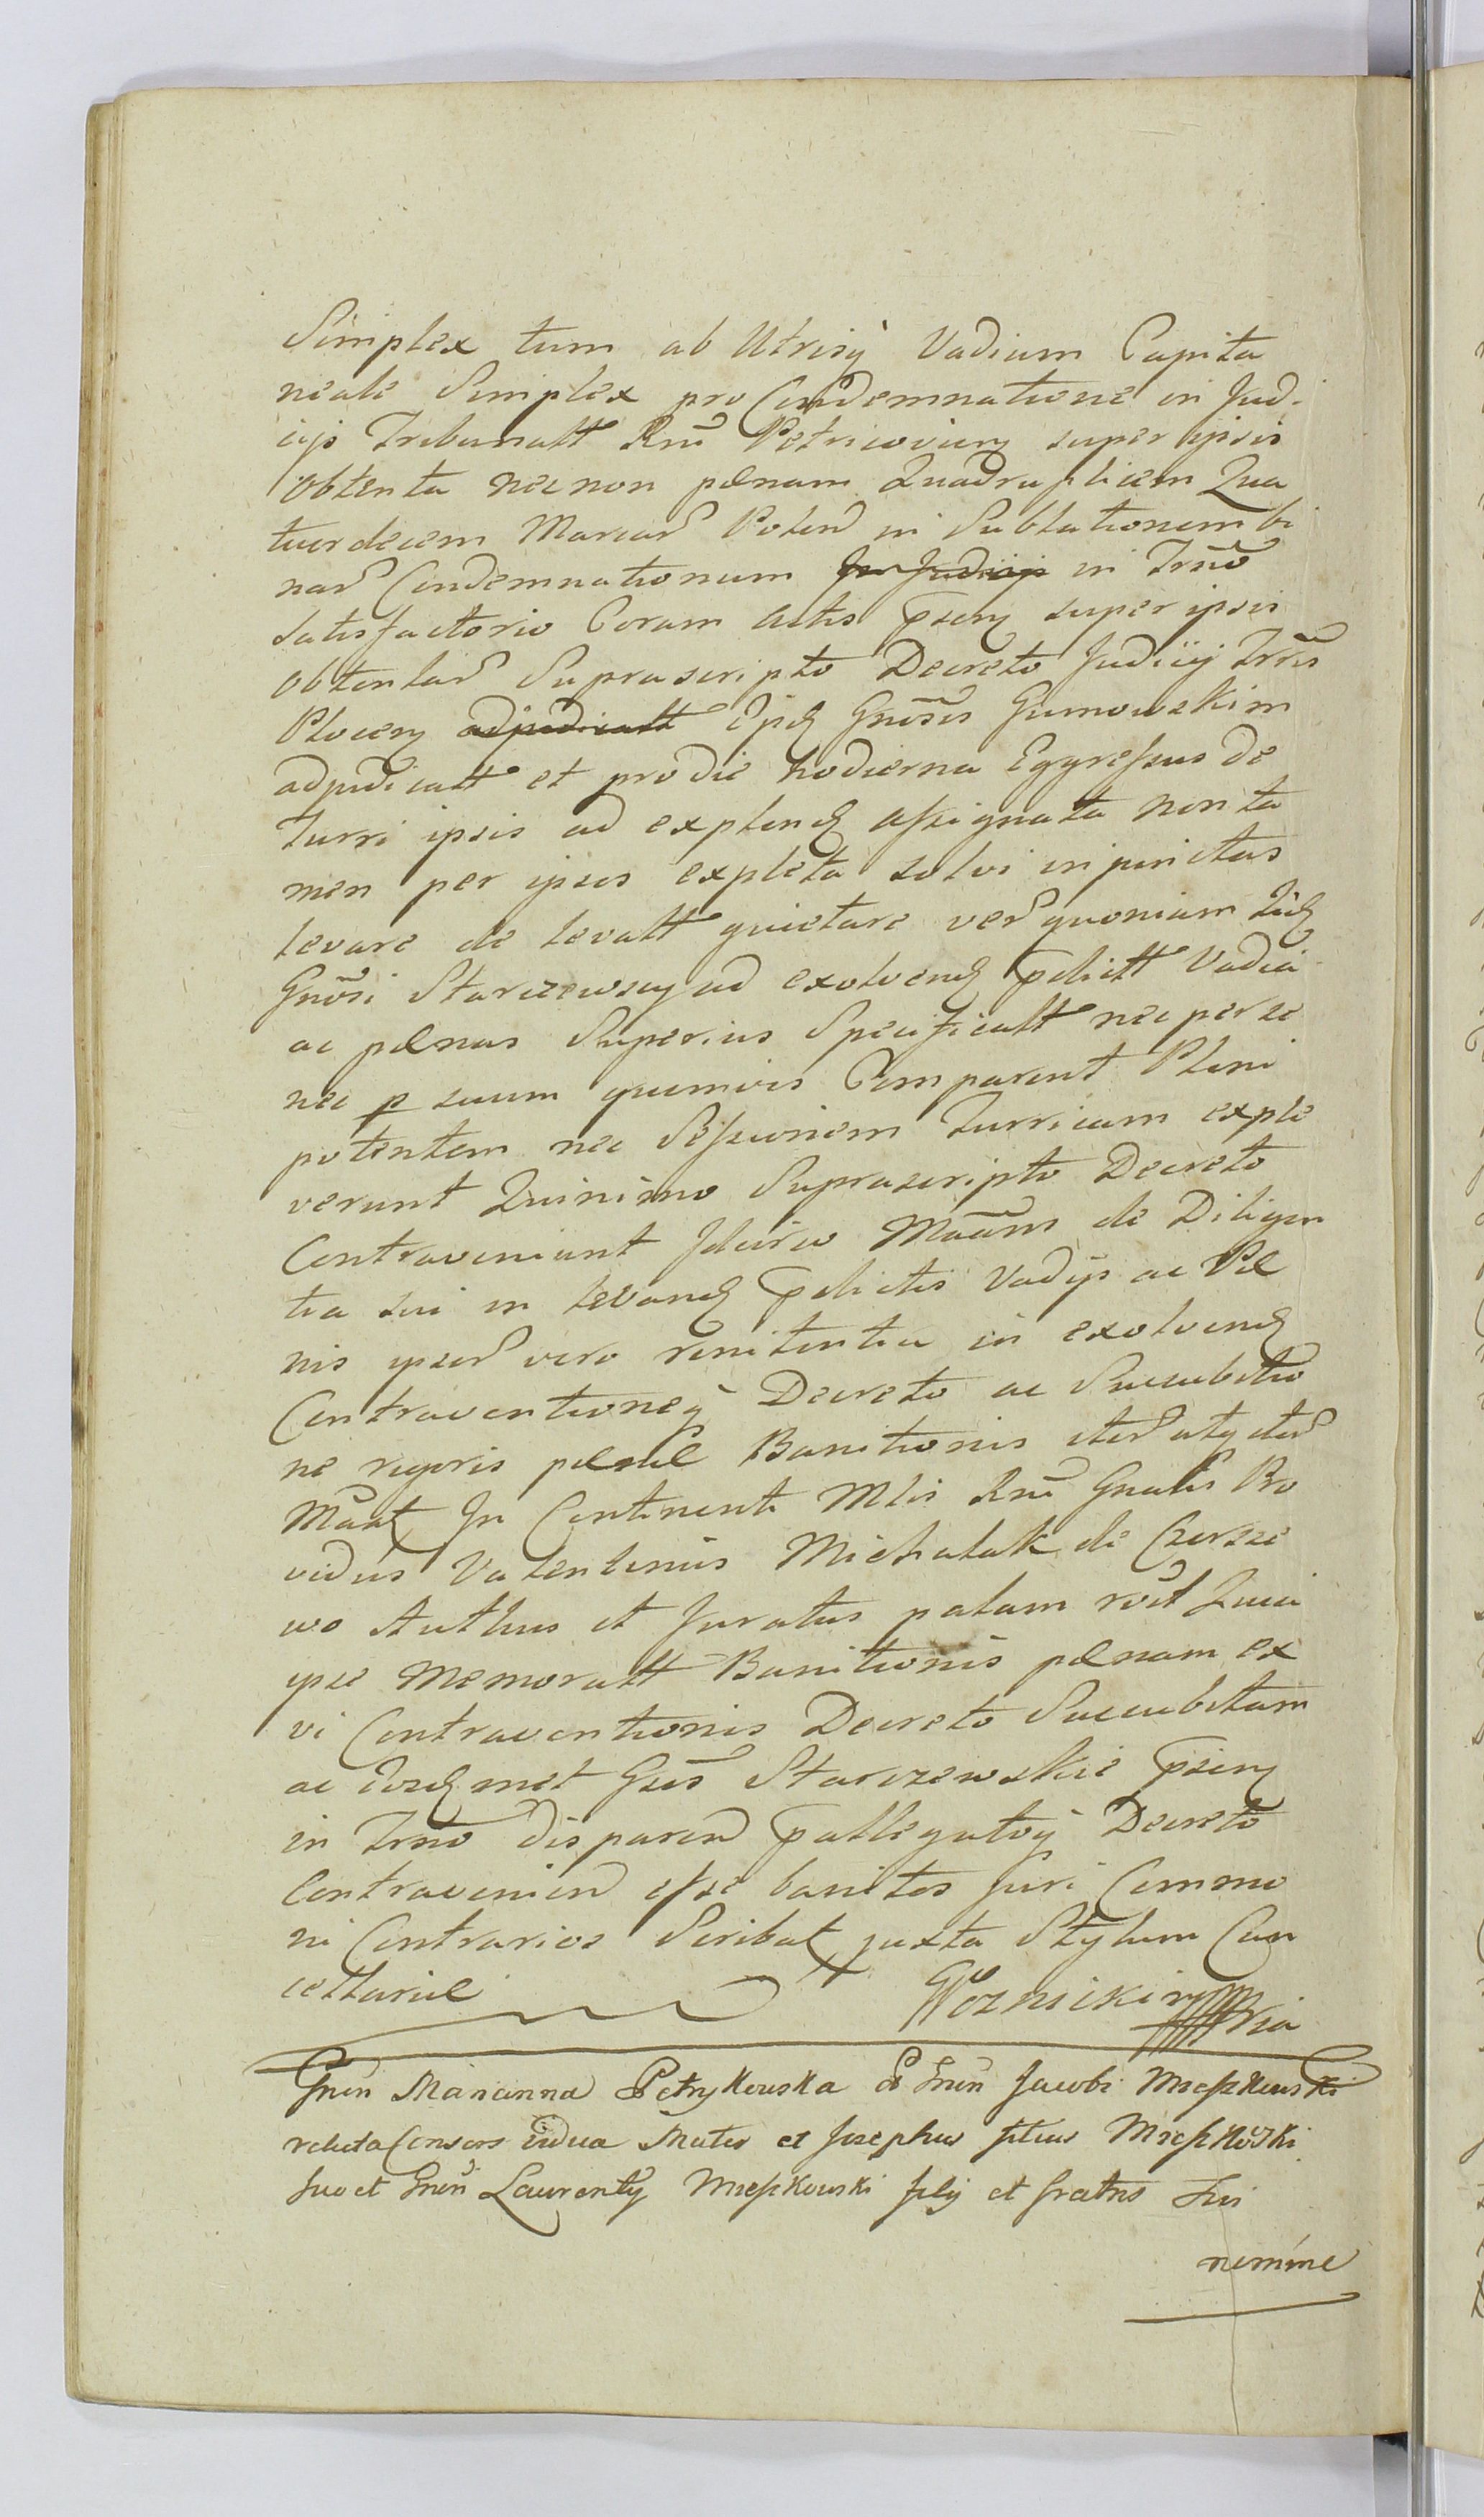 Simplex tum ab Utrisq̀ Vadium Capita
neale Simplex pro Condemnatione in Jud-
icijs Tribunatt Rnĩ Petricovien super ipsis
obtenta necnon pœnam Quadruplicem Qua
tuordecem Marcar Polen in Sublationem bi
nar Condemnationum in Trño
satisfactorio Coram Actis super ipsis
obtentar Suprascripto Decreto Judicij Trris
Plocen adjudicatt Gnosis Gumowskim
adjudicatt et pro die hodierna Egressus de
Turri ipsis ad explend assignata non ta
men per ipsos expleta solvi injunctas
levare de levatt quietare ver quoniam
Gnosi Starczewscy ad exolvend pdictt Vadia
ac pœnas Superius Specificatt nec per se
nec p suum quemvis Comparent Pleni
potentem nec Sessionem Turrium exple
verunt Quinimo Suprascripto Decreto
Contraveniunt Idcirco de Diligen
tia sui in levand pdictis Vadijs ac Pœ
nis ipsor vero renitentia in exolvend
Contraventioneq̀ Decreto ac Succubitio
ne rigoris pœnæ Banitionis iter atq iter
In Continenti Mlis Rnĩ Gnalis Pro
vidus Valentinus Michalak de Czersze
wo Authus et Juratus palam Quia
ipse Memoratt Banitionis pœnam ex
vi Contraventionis Decreto Succubitam
ac met Gsos Starczewskie
in Trno disparen pallegatoq̀ Decreto
Contravenien esse banitos Juri Commu
ni Contrarios Scribat juxta Stylum Can
cellariæ Woznicki
Gnen Marianna Petrykowska Gnen Jacobi Mieszkowski
relicta Consors vidua Mater et Josephus filius Mieszkoski
suo et Gnen Laurenty Mieszkowski filij et fratris sui
nomine